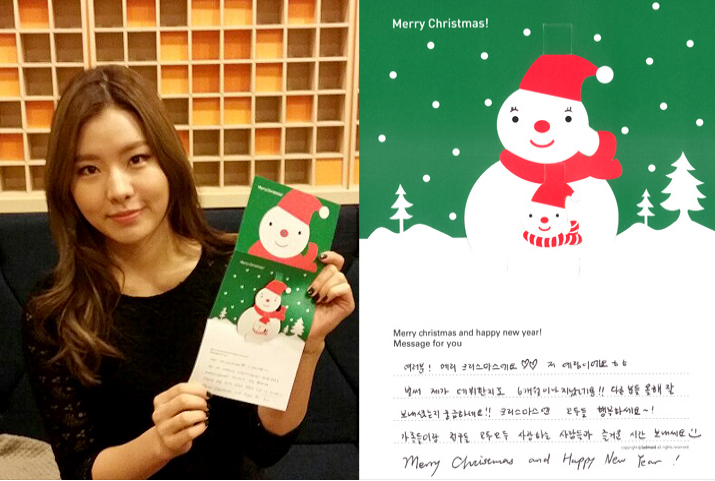 Merry Christmas!
Merry Christmas!
Merry Christmas!
Merry christmas and happy new year!
Message for you
여러분! 메리 크리스마스에요♡♡ 저 예림이에요 ㅎㅎ
벌써 제가 데뷔한지도 6개월이나 지났네요!! 다들 올해 잘
보내셨는지 궁금하네요!! 크리스마스 모두들 행복하세요~!
가족들이랑 친구들 모두모두 사랑하는 사람들과 즐거운 시간 보내세요
copyright all rights reserved
Merry Chrisemas and Happy New Year !